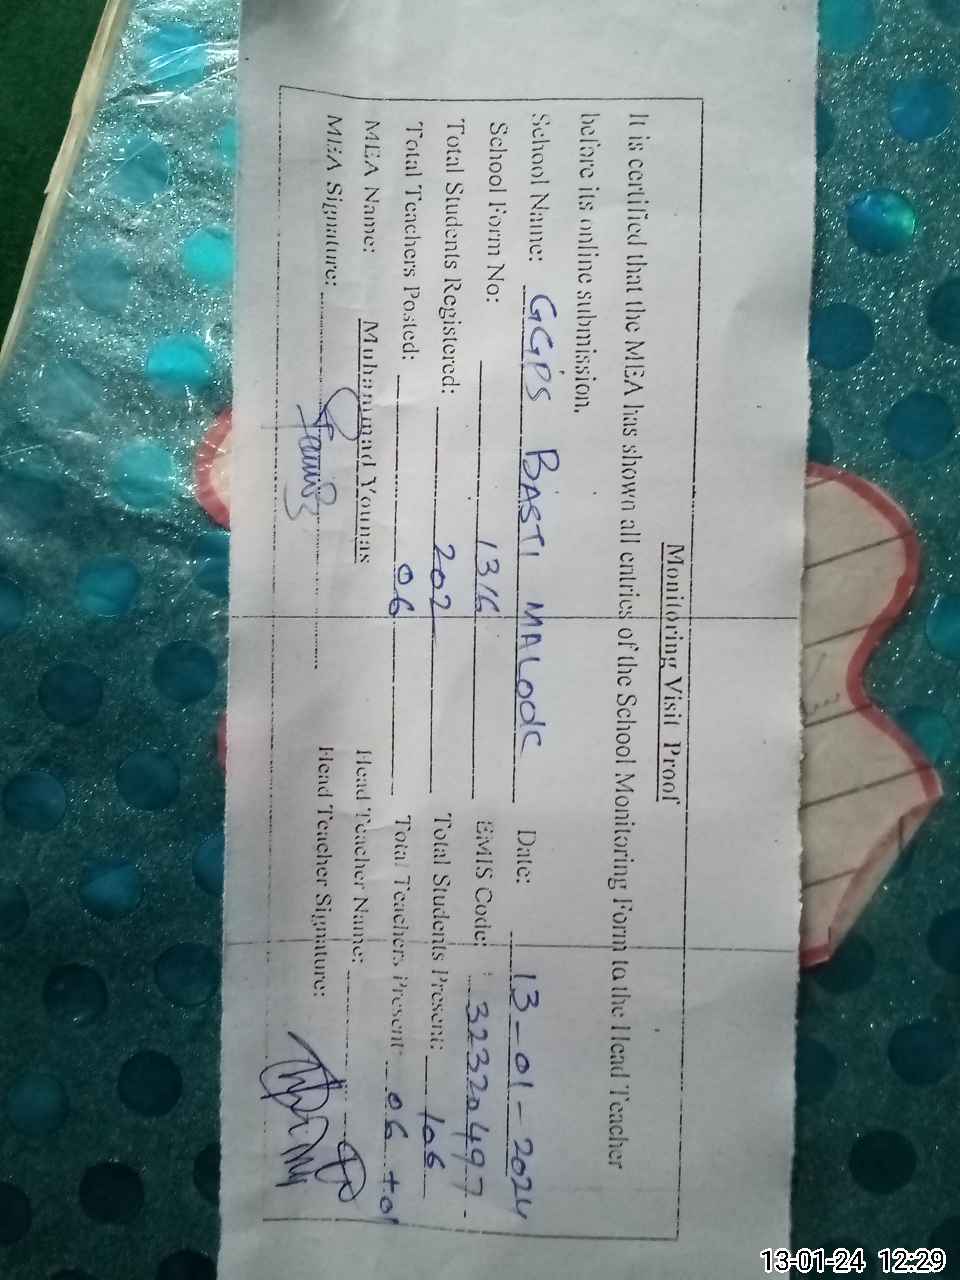 Monitoring Visit Proof
It is certified that the MEA has shown all entries of the School Monitoring Form to the Head Teacher
before its online submission.
School Name: GGPS BASTI MALODC Date: 13-01-2024
School Form No: 1316 EMIS Code: 32320497
Total Students Registered: 202 Total Students Present: 106
Total Teachers Posted: 06 Total Teachers Present: 06 + 01
MEA Name: Muhammad Younas Head Teacher Name:
MEA Signature: Head Teacher Signature:
13-01-24 12:29